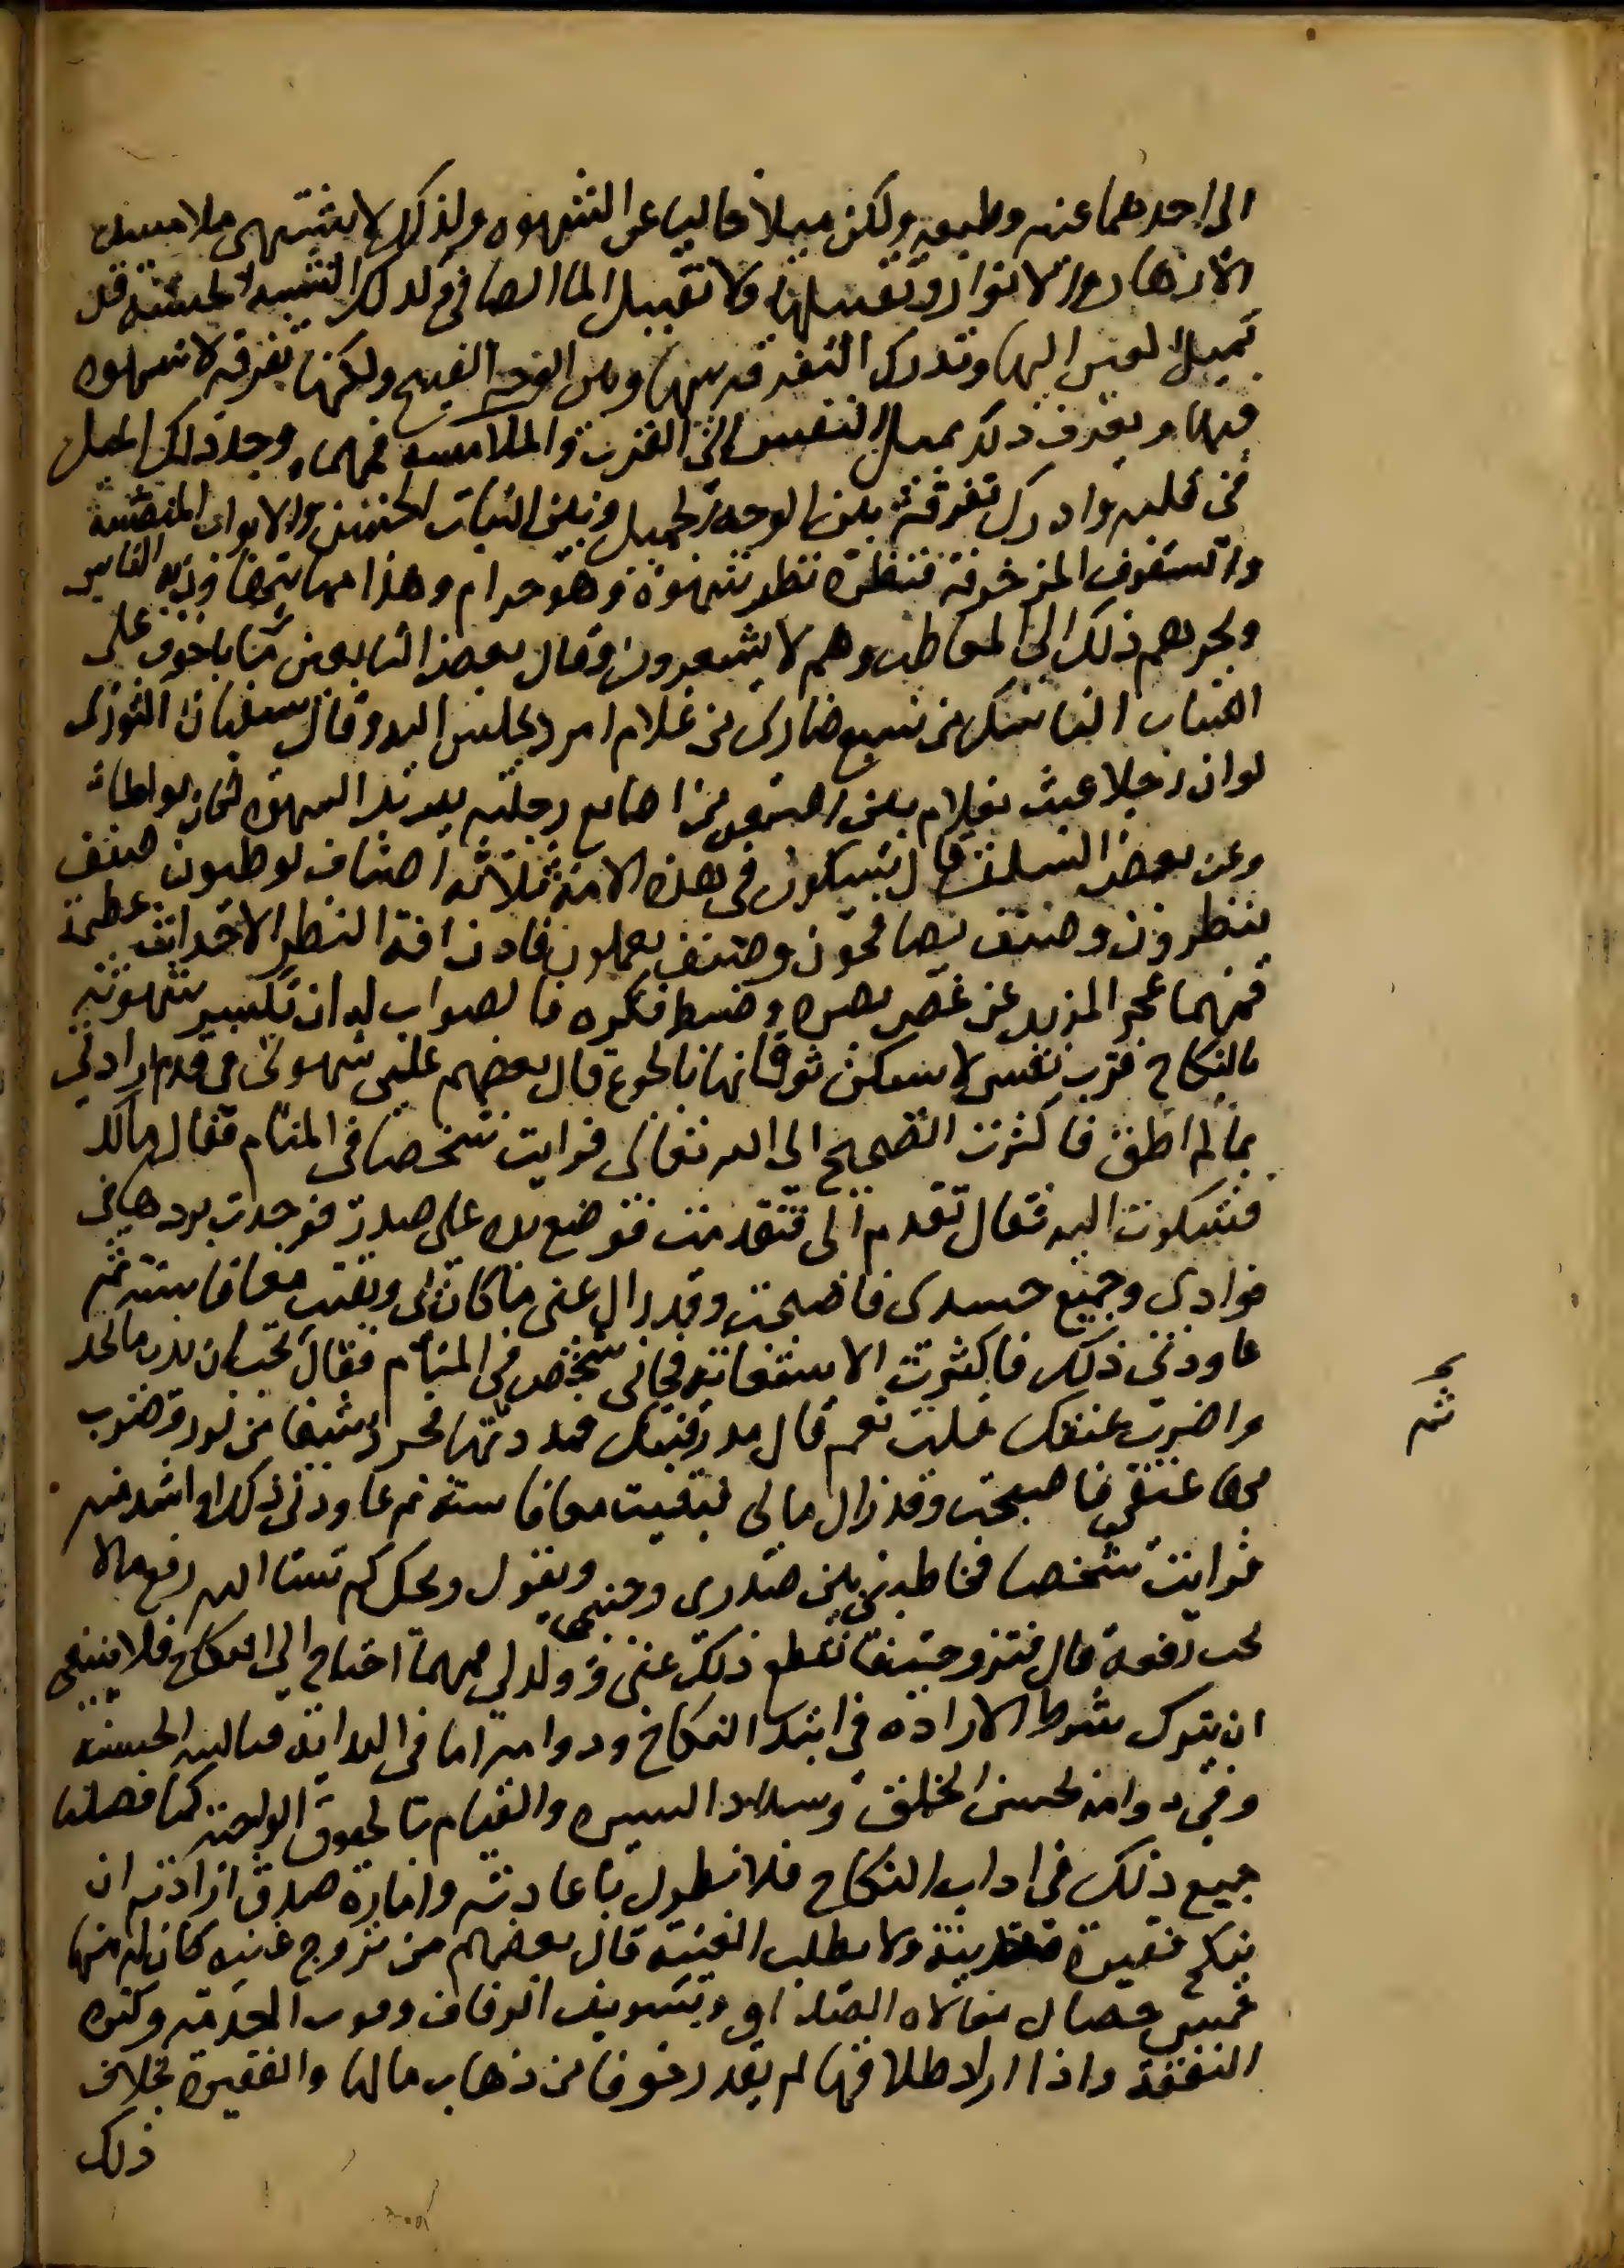 الى احدهما عنه وطبعه ولكن ميلا خاليا عن الشهوه ولذلك لا يشتهى ملامسة
الازهار والانوار وتقبيلها ولا تقبيل الما الصافى وكذلك الشيبة الحسنة قد
تميل العين اليها وتدرك التفرقة بينها وبين الوجه القبيح ولكنها تفرقة لا شهوه
فيها ويعرف ذلك بميل النفس الى القرب والملامسه فمهما وجد ذلك الميل
فى قلبه وادرك تفرقة بين الوجه الجميل وبين النبات الحسن والاثواب المنقشة
والسقوف المزخرفة فنظره نظر شهوة فهو حرام وهذا مما يتهاون به الناس
ويجرهم ذلك الى المعاطب وهم لا يشعرون وقال بعض التابعين ما انا باخوف على
الشاب الناسك من سبع ضارى من غلام امرد يجلس اليه وقال سفيان الثورى
لو ان رجلا عبث بغلام بين اصبعين من اصابع رجليه يريد الشهوه لكان لواطا
وعن بعض السلف قال سيكون فى هذه الامة ثلاثه اصناف لوطيون صنف
ينظرون وصنف يصافحون وصنف يعملون فاذن افة النظر الاحداث عظيمة
فمهما عجز المريد عن غض بصره وضبط فكره فالصواب له ان يكسر شهوته
بالنكاح فرب نفس لا يسكن توقانها بالجوع قال بعضهم غلبت على شهوتى فى بدو ارادتى
بما لم اطق فاكثرت الضجيج الى الله تعالى فرايت شخصا فى المنام فقال مالك
فشكوت اليه فقال تقدم الى فتقدمت فوضع يده على صدرى فوجدت بردها فى
فوادى وجميع جسدى فاصبحت وقد زال عنى ما كان بى وبقيت معافا سنة ثم
عاودنى ذلك فاكثرت الاستغاثة فجانى شخص فى المنام فقال تحب ان يذهب ما تجد
واضرب عنقك قلت نعم قال مد رقبتك فمددتها فجرد سيفا من نور وضرب
بها عنقى فاصبحت وقد زال ما بى فبقيت معافا سنة ثم عاودنى ذلك او اشد منه
فرايت شخصا يخاطبنى بين صدرى وجنبى ويقول ويحك كم تسئل الله رفع ما لا
يحب رفعه قال فتزوجت فانقطع ذلك عنى وولد لى ومهما احتاج الى النكاح فلا ينبغى
ان يترك شرط الارادة فى ابتدا النكاح ودوامه اما فى ابتدائه فبالنية الحسنة
وفى دوامه بحسن الخلق وسداد السيره والقيام بالحقوق الواجبة كما فصلنا
جميع ذلك فى اداب النكاح فلا نطول باعادته وامارة صدق ارادته ان
ينكح فقيرة متدينة ولا يطلب الغنيه قال بعضهم من تزوج غنيه كان له منها
خمس خصال مغالاه الصداق وتسويف الزفاف وفوت الخدمة وكثره
النفقة واذا اراد طلاقها لم يقدر خوفا من ذهاب مالها والفقيرة بخلاف
ذلك